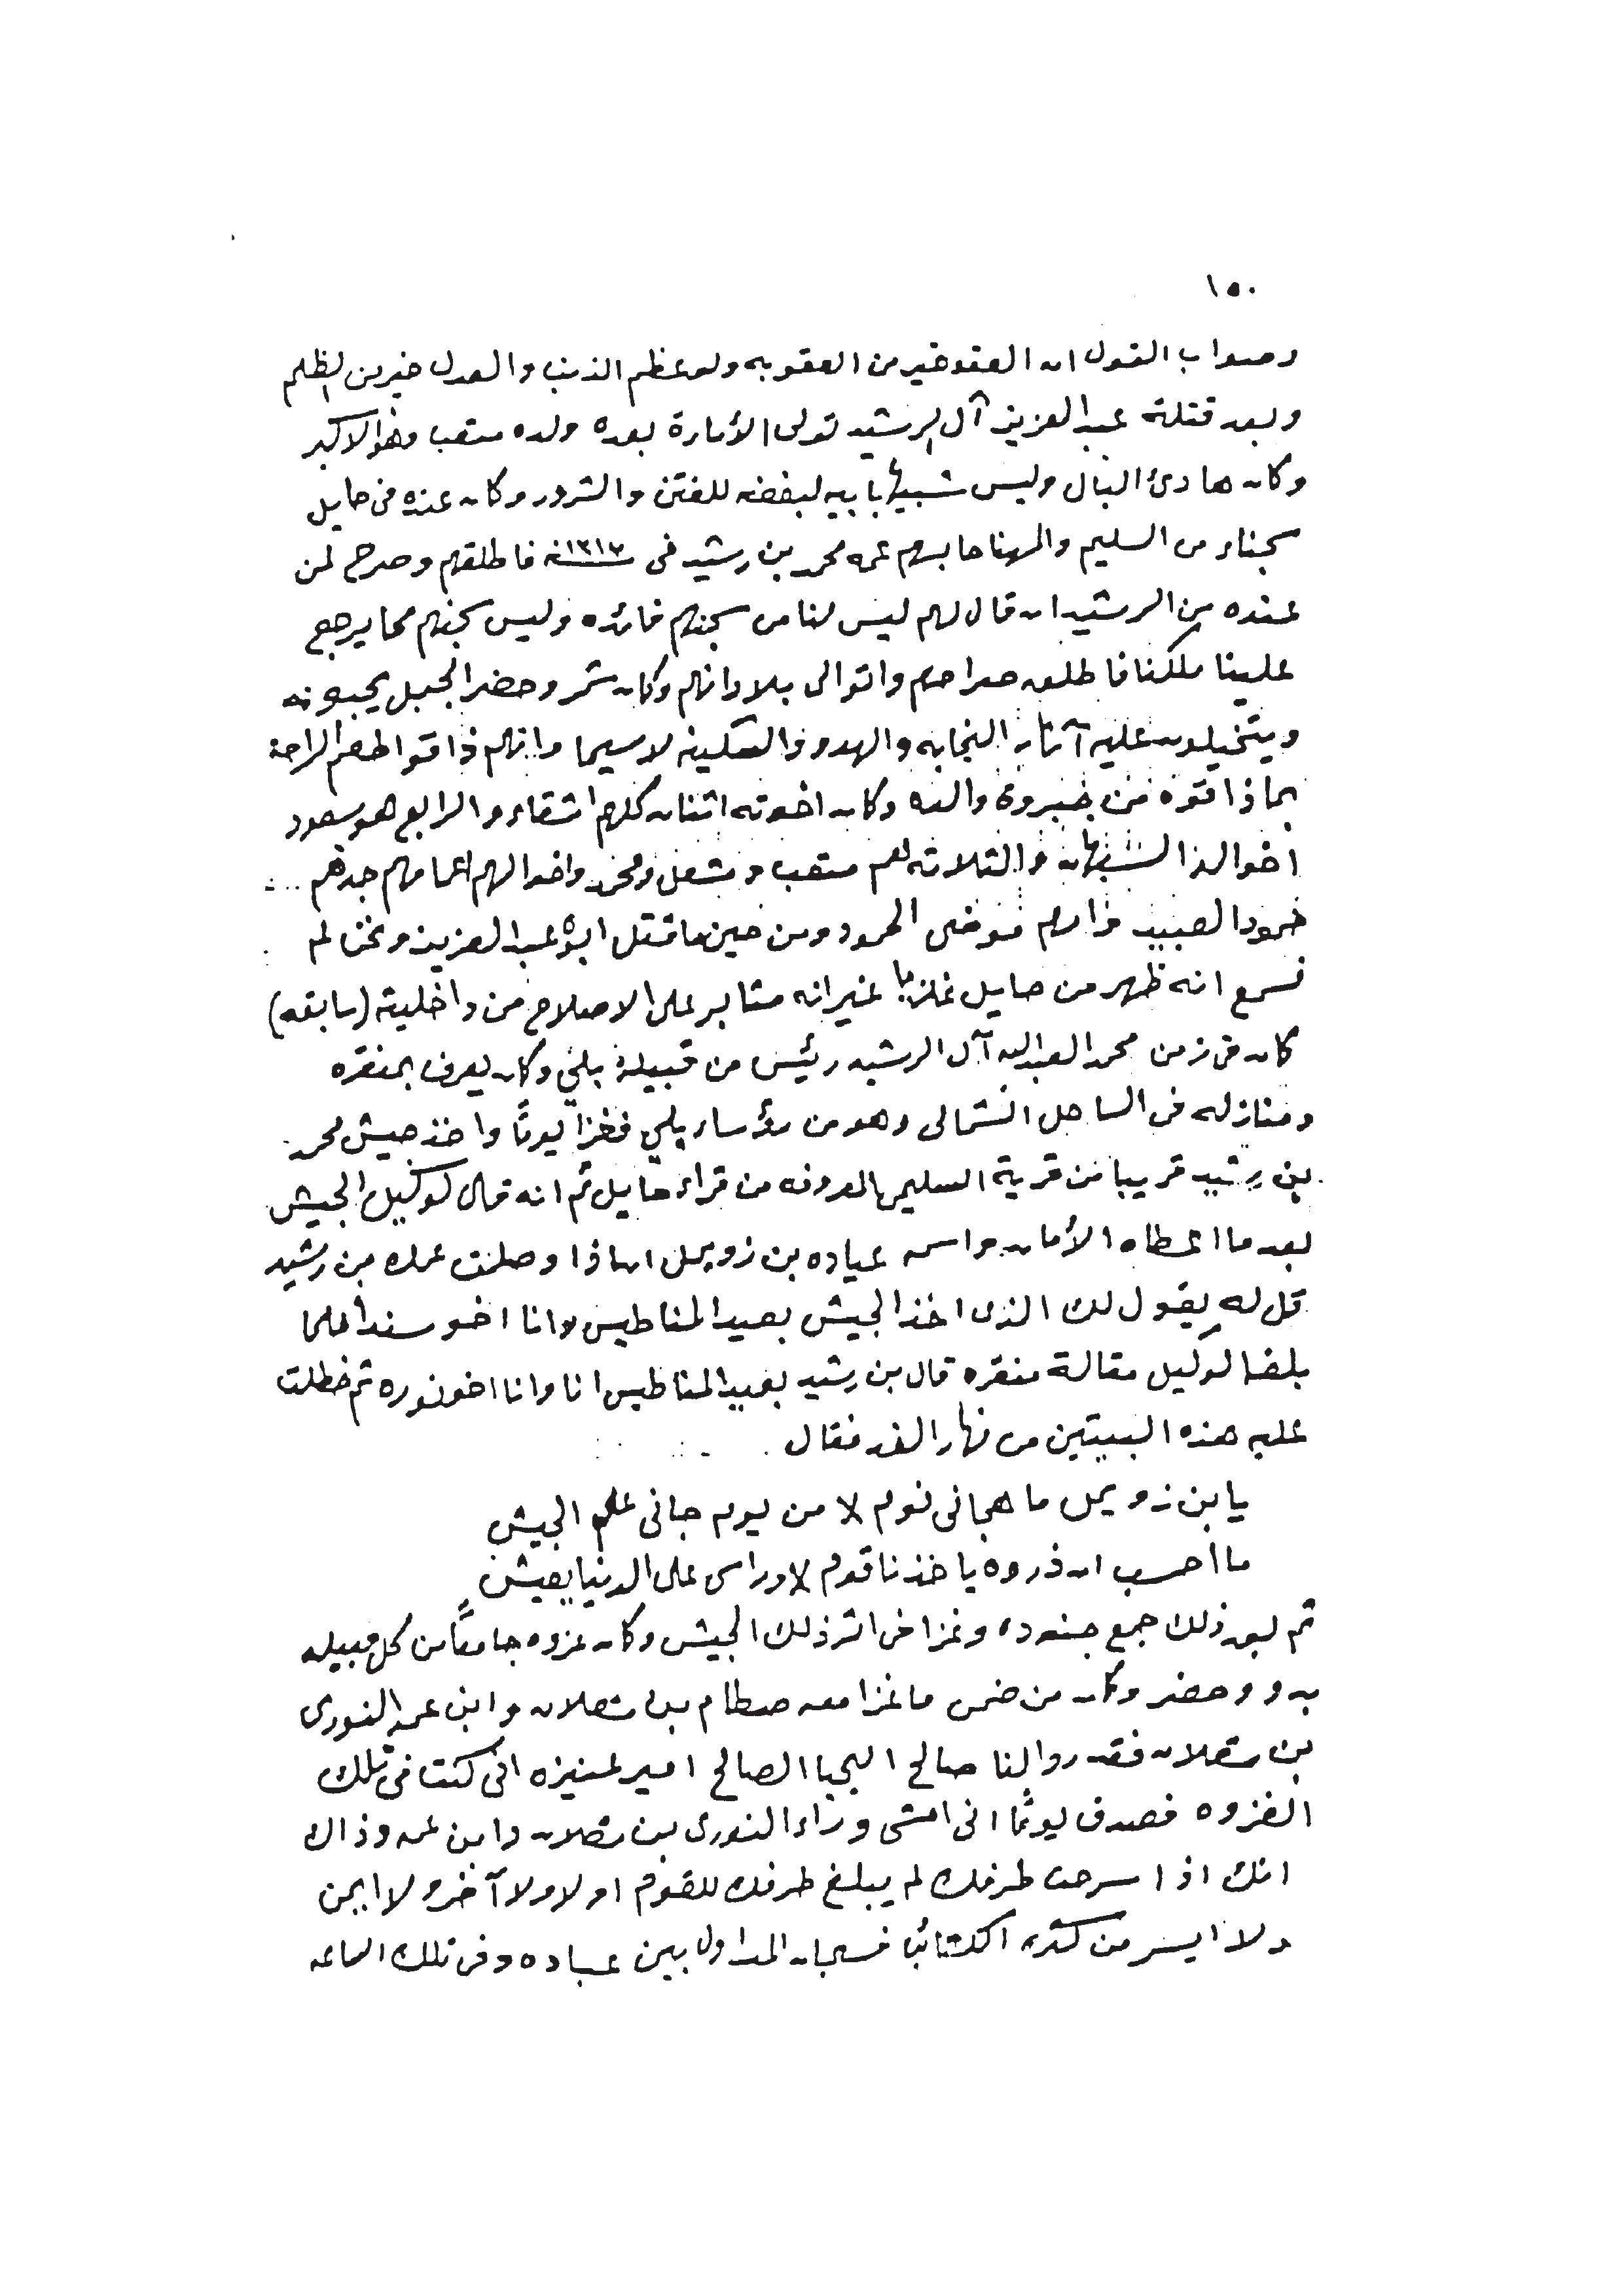 ١٥٠
وصواب القول ان العفو خير من العقوبه ولو عظم الذنب والعدل خير من الظلم
وبعد قتلة عبد العزيز آل الرشيد تولى الأمارة بعده ولده متعب وهو الاكبر
وكان هادئ البال وليس شبيها بابيه لبغضه للفتن والشرور وكان عنده في حايل
سجناء من السليم والمهنا حابسهم عمه محمد بن رشيد في سنة ١٣١٣ فاطلقهم وصرح لمن
عنده من الرشيد ان قال لهم ليس لنا من سجنهم فائده وليس سجنهم مما يرجع
علينا ملكنا فاطلق صراحهم واتوا الى بلادانهم وكان شمر وحضر الجبل يحبونه
ويتخيلون عليه آثار النجابه والهدو والسكينه لاسيما وانهم ذاقوا طعم الراحة
بما ذاقوه من جبروة والده وكان اخوته اثنان كلهم اشقاء والرابع هو سعود
اخواله السبهان والثلاثه هم متعب ومشعل ومحمد واخوالهم اعمامهم جدهم
حمود العبيد وامهم موضى الحمود ومن حين ما قتل ابوه عبد العزيز ونحن لم
نسمع انه ظهر من حايل غازيا غير انه مثابر على الاصلاح من داخلية (سابقه)
كان في زمن محمد العبدالله آل الرشيد رئيس من قبيلة بلي وكان يعرف بمنقره
ومنازله في الساحل الشمالى وهو من رؤساء بلي فغزا يومًا واخذ جيش محمد
بن رشيد قريبا من قرية السليمي المعروفه من قراء حايل ثم انه قال لوكيل الجيش
بعد ما اعطاه الأمان واسمه عياده بن زويمل ان اذا وصلت عمك بن رشيد
قل له يقول لك الذى اخذ الجيش بعيد المناطيس وانا اخو سندا فلما
بلغا لوكيل مقالة منقره قال بن رشيد بعيد المناطيس انا وانا اخو نوره ثم خطلت
عليه هذه البيتين من نهار الغد فقال
يا بن زويمل ما هجاني نوم لا من يوم جاني علم الجيش
ما أحسب ان ذروه ياخذنا قوم لا وراسى على الدنيا يعيش
ثم بعد ذلك جمع جنوده وغزا في اثر ذلك الجيش وكان غزوه جامعًا من كل قبيله
بدو وحضر وكان من ضمن ما غزا معه صطام بن شعلان وابن عمه النورى
بن شعلان فقد روا لنا صالح اليحيا الصالح امير عنيزه انى كنت في تلك
الغزوه فصدف يومًا انى امشى وراء النورى بن شعلان وابن عمه وذاك
انك اذا سرحت طرفك لم يبلغ طرفك للقوم اولا ولا آخر ولا ايمن
ولا ايسر من كثرة الكتائب فسبحان المداول بين عباده وفى تلك الساعه